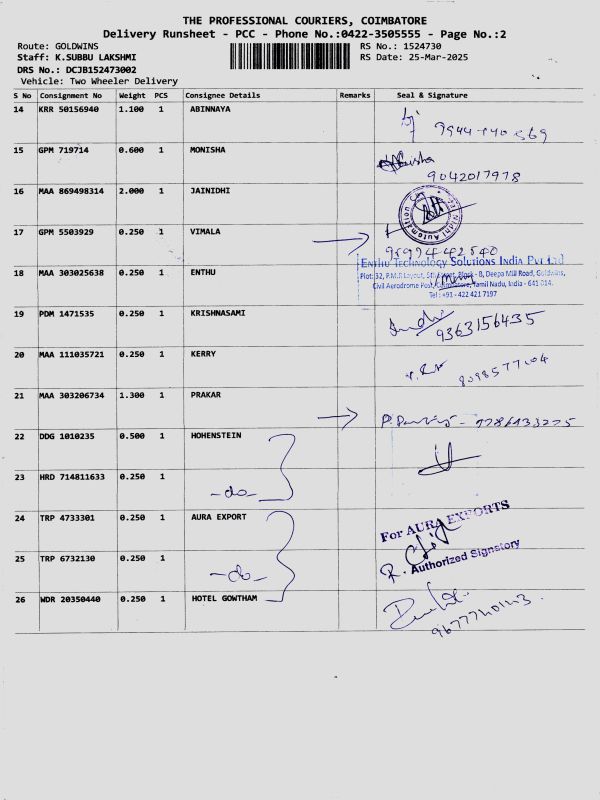 THE PROFESSIONAL COURIERS, COIMBATORE
Delivery Runsheet - PCC - Phone No.:0422-3505555 - Page No.:2
Route: GOLDWINS
RS No.: 1524730
Staff: K.SUBBU LAKSHMI
RS Date: 25-Mar-2025
DRS No.: DCJB152473002
Vehicle: Two Wheeler Delivery
S No Consignment No Weight PCS Consignee Details Remarks Seal & Signature
14 KRR 50156940 1.100 1 ABINNAYA
15 GPM 719714 0.600 1 MONISHA
9042017978
16 MAA 869498314 2.000 1 JAINIDHI
17 GPM 5503929 0.250 1 VIMALA
9599442540
ENTHU TECHNOLOGY SOLUTIONS INDIA Pvt Ltd
18 MAA 303025638 0.250 1 ENTHU
Plot: 32, P.M.R Layout, 5th Street, Block - B, Deepa Mill Road, Goldwins,
Civil Aerodrome Post, Coimbatore, Tamil Nadu, India - 641 014.
Tel : +91 - 422 421 7197
19 PDM 1471535 0.250 1 KRISHNASAMI
9363156435
20 MAA 111035721 0.250 1 KERRY
21 MAA 303206734 1.300 1 PRAKAR
22 DDG 1010235 0.500 1 HOHENSTEIN
23 HRD 714811633 0.250 1
-do-
24 TRP 4733301 0.250 1 AURA EXPORT
For AURA EXPORTS
25 TRP 6732130 0.250 1
-do-
R. Authorized Signatory
26 WDR 20350440 0.250 1 HOTEL GOWTHAM